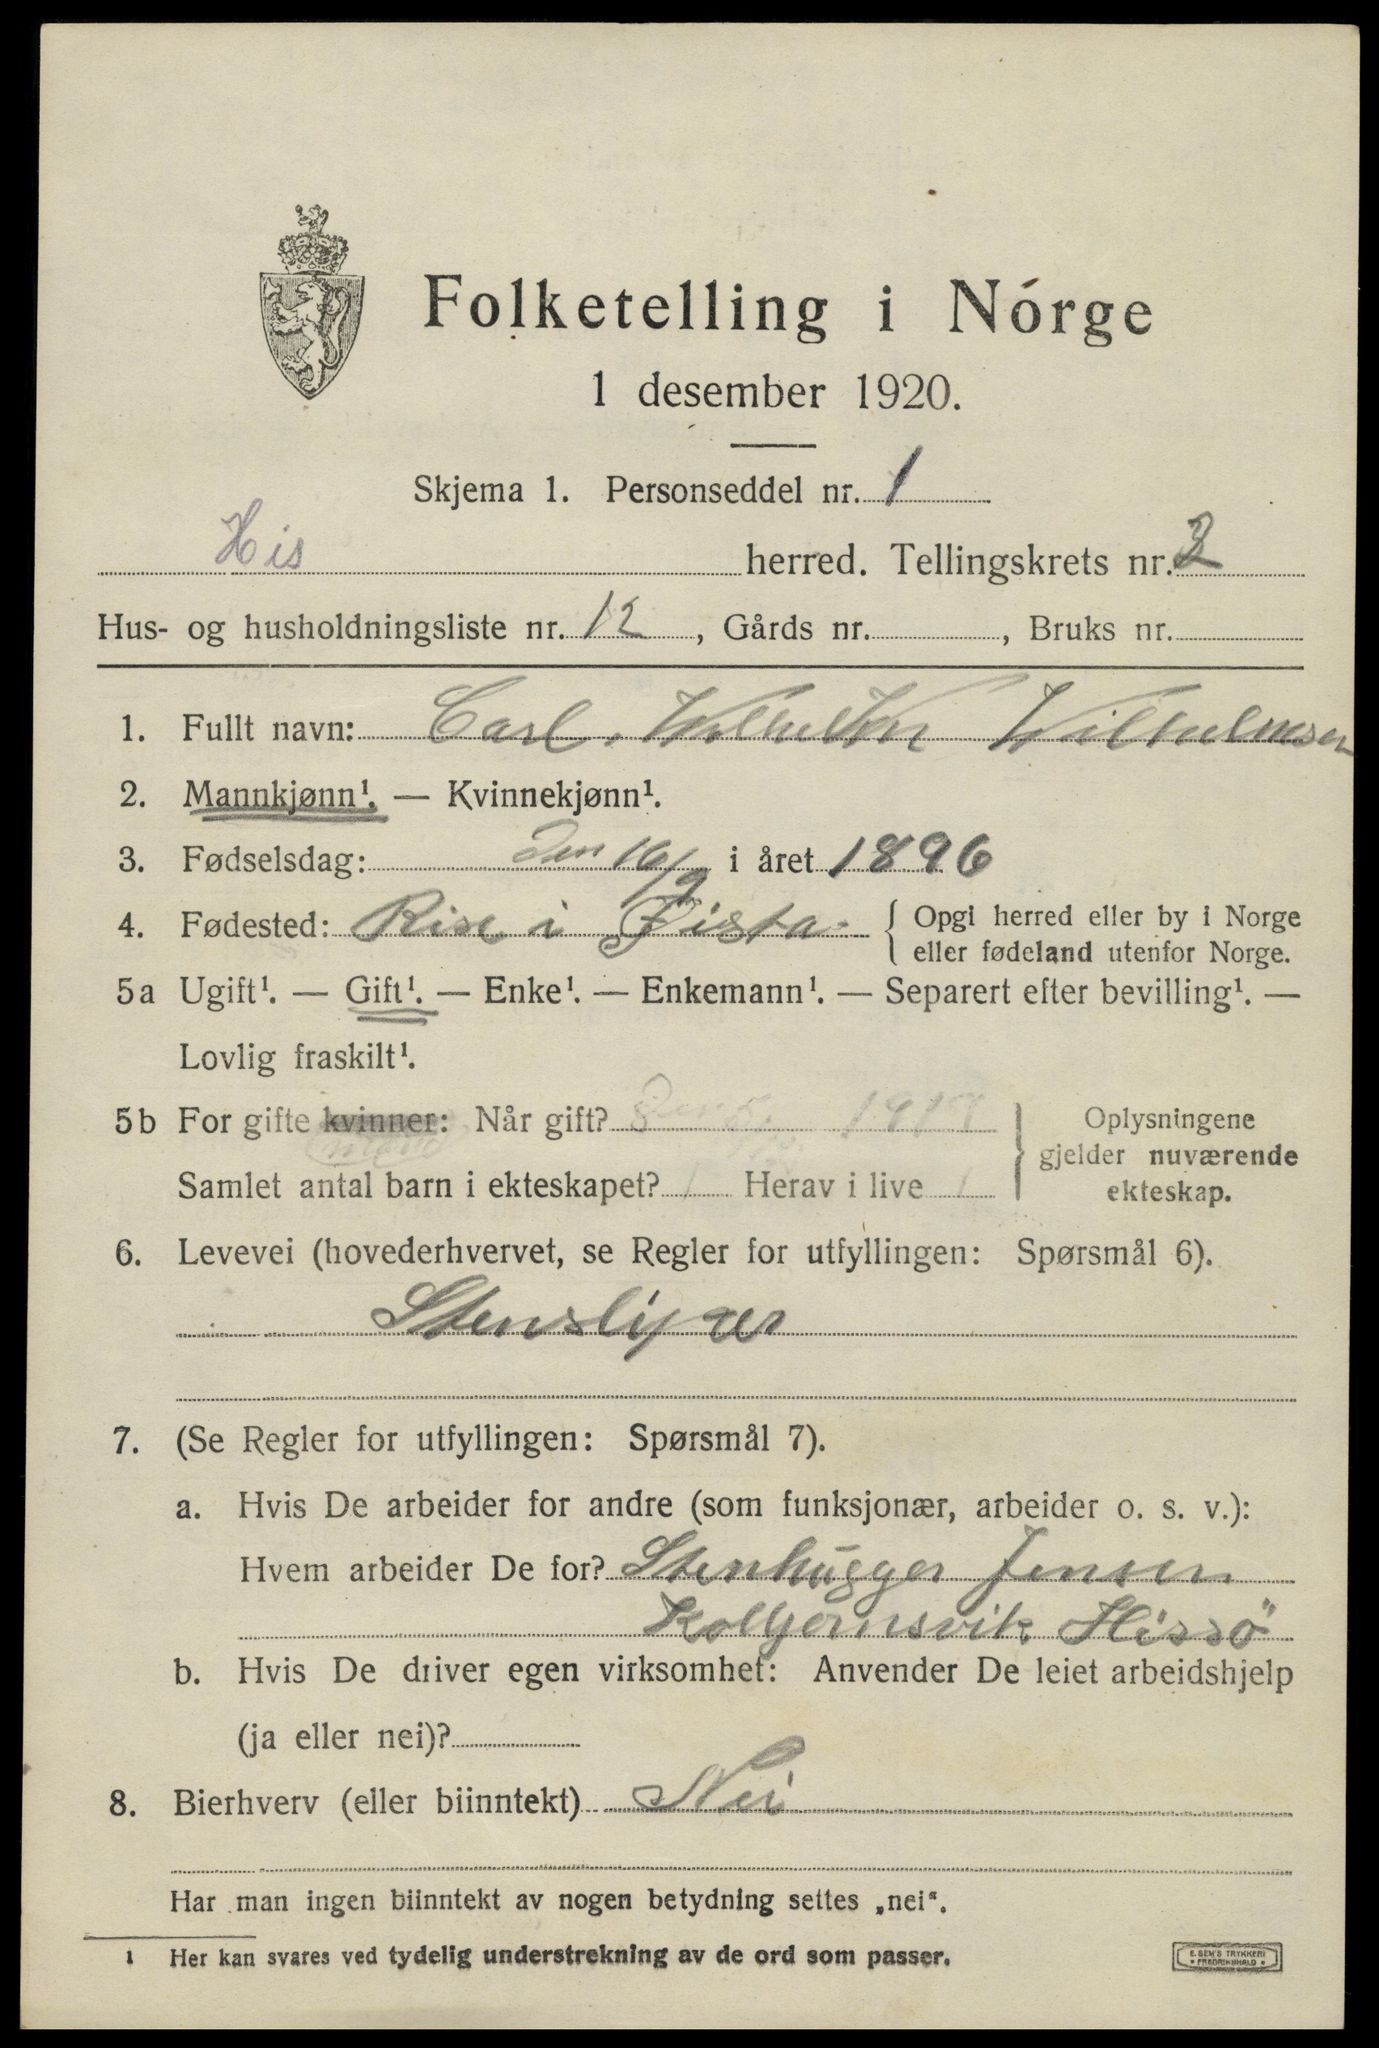 Folketelling i Norge
1 desember 1920.
Skjema 1. Personseddel nr. 1
His herred. Tellingskrets nr. 3
Hus- og husholdningsliste nr. 12, Gårds nr. , Bruks nr.
1. Fullt navn: Carl. Wilhelm Wilhelmsen
2. Mannkjønn¹. — Kvinnekjønn¹.
3. Fødselsdag: den 16/9 i året 1896
4. Fødested: Rise i { Opgi herred eller by i Norge
eller fødeland utenfor Norge.
5a Ugift¹. — Gift¹. — Enke¹. — Enkemann¹. — Separert efter bevilling¹. —
Lovlig fraskilt¹.
5b For gifte kvinner: Når gift? 1917 } Oplysningene
gjelder nuværende
ekteskap.
Samlet antal barn i ekteskapet? 1 Herav i live 1
6. Levevei (hovederhvervet, se Regler for utfyllingen: Spørsmål 6).
Stensliper
7. (Se Regler for utfyllingen: Spørsmål 7).
a. Hvis De arbeider for andre (som funksjonær, arbeider o. s. v.):
Hvem arbeider De for? Stenhugger Jensen
Kolbjernsvik Hissö
b. Hvis De driver egen virksomhet: Anvender De leiet arbeidshjelp
(ja eller nei)?
8. Bierhverv (eller biinntekt) Nei
Har man ingen biinntekt av nogen betydning settes „nei“.
1 Her kan svares ved tydelig understrekning av de ord som passer.
E. SEM'S TRYKKERI
• FREDRIKSHALD •